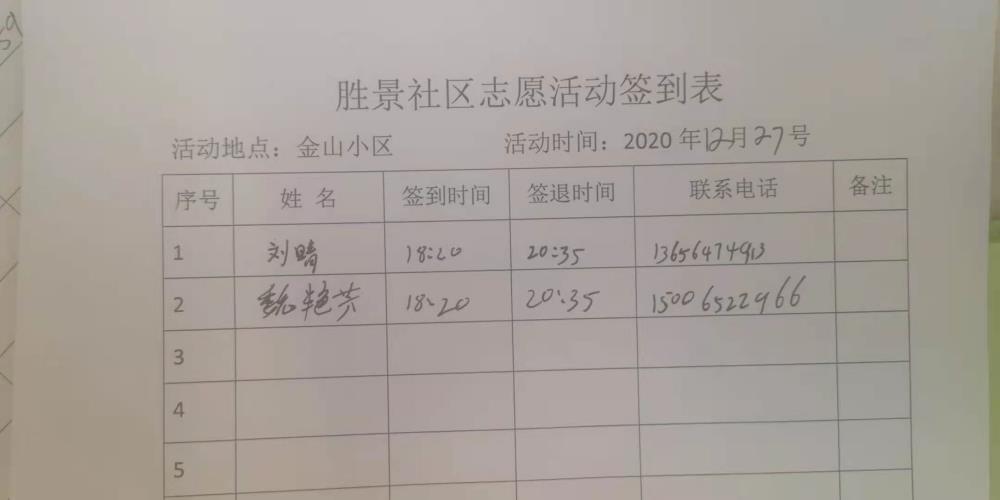 胜景社区志愿活动签到表
活动地点：金山小区 活动时间：2020 年12月27号
序号 姓 名 签到时间 签退时间 联系电话 备注
1 刘晴 18:20 20:35 13656474913
2 魏艳芳 18:20 20:35 15006522966
3
4
5